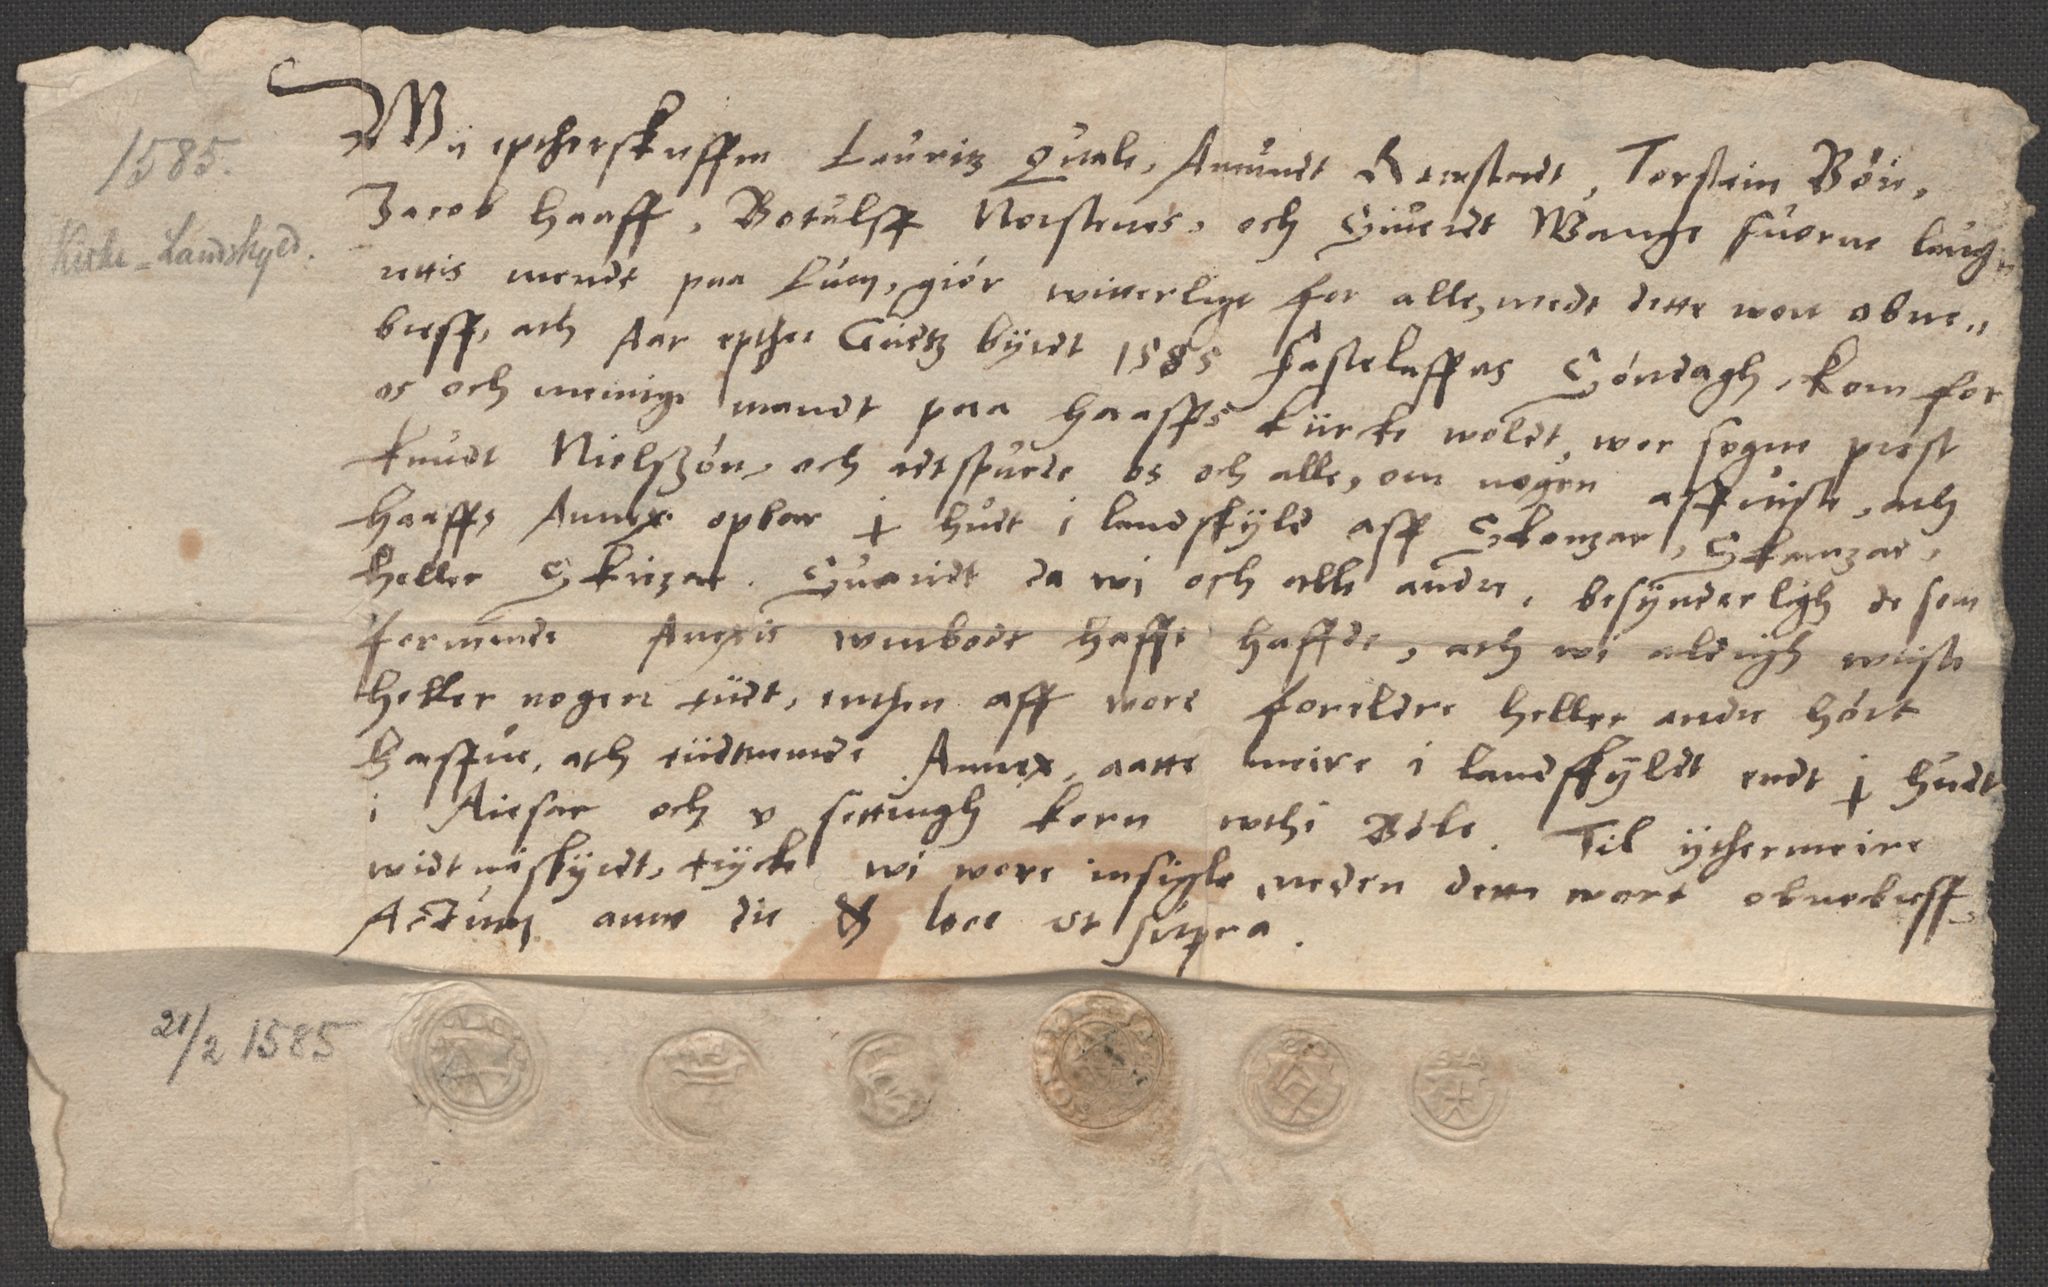 1585.
Kirke-Landskyld.
Wij eptherskreffne Lauritz Quale, Amundt Reirstadt, Torstein Böii,
Jacob Haaff, Botulff Norstenes, och Siuerdt Wange suorne laug„
rettis mendt paa Lum, giór witterligt for alle, medt dette wort obne„
breff, ath Aar epther Gudtz byrdt 1585 Fastelaffns Söndagh, kom for
os och meinige mandt paa Haaffs kiirke woldt, wor sogne prest
Knudt Nielszón, och adtspurde os och alle, om nogen aff wiste, ath
Haaffs Annex opbar j hudt i landskyld aff Skonzar, Skanzar,
heller Skiizar. Suaridt da wi och alle andre, besynderligh de som
formende Anexis wmbodt hafft haffde, ath wi aldrigh wiste
heller nogen tiidt, enthen aff wore foreldre heller andre hórt
haffue, ath tiidtnemde Annex, aatte meire i landskyldt endt j hudt
i Aiesar och v settingh korn wthi Bóle. Til ythermeire
widtniskyrdt, trycke wi wore insigle neden dette wort obnebreff.
Actum anno die & loco vt supra.
21/2 1585